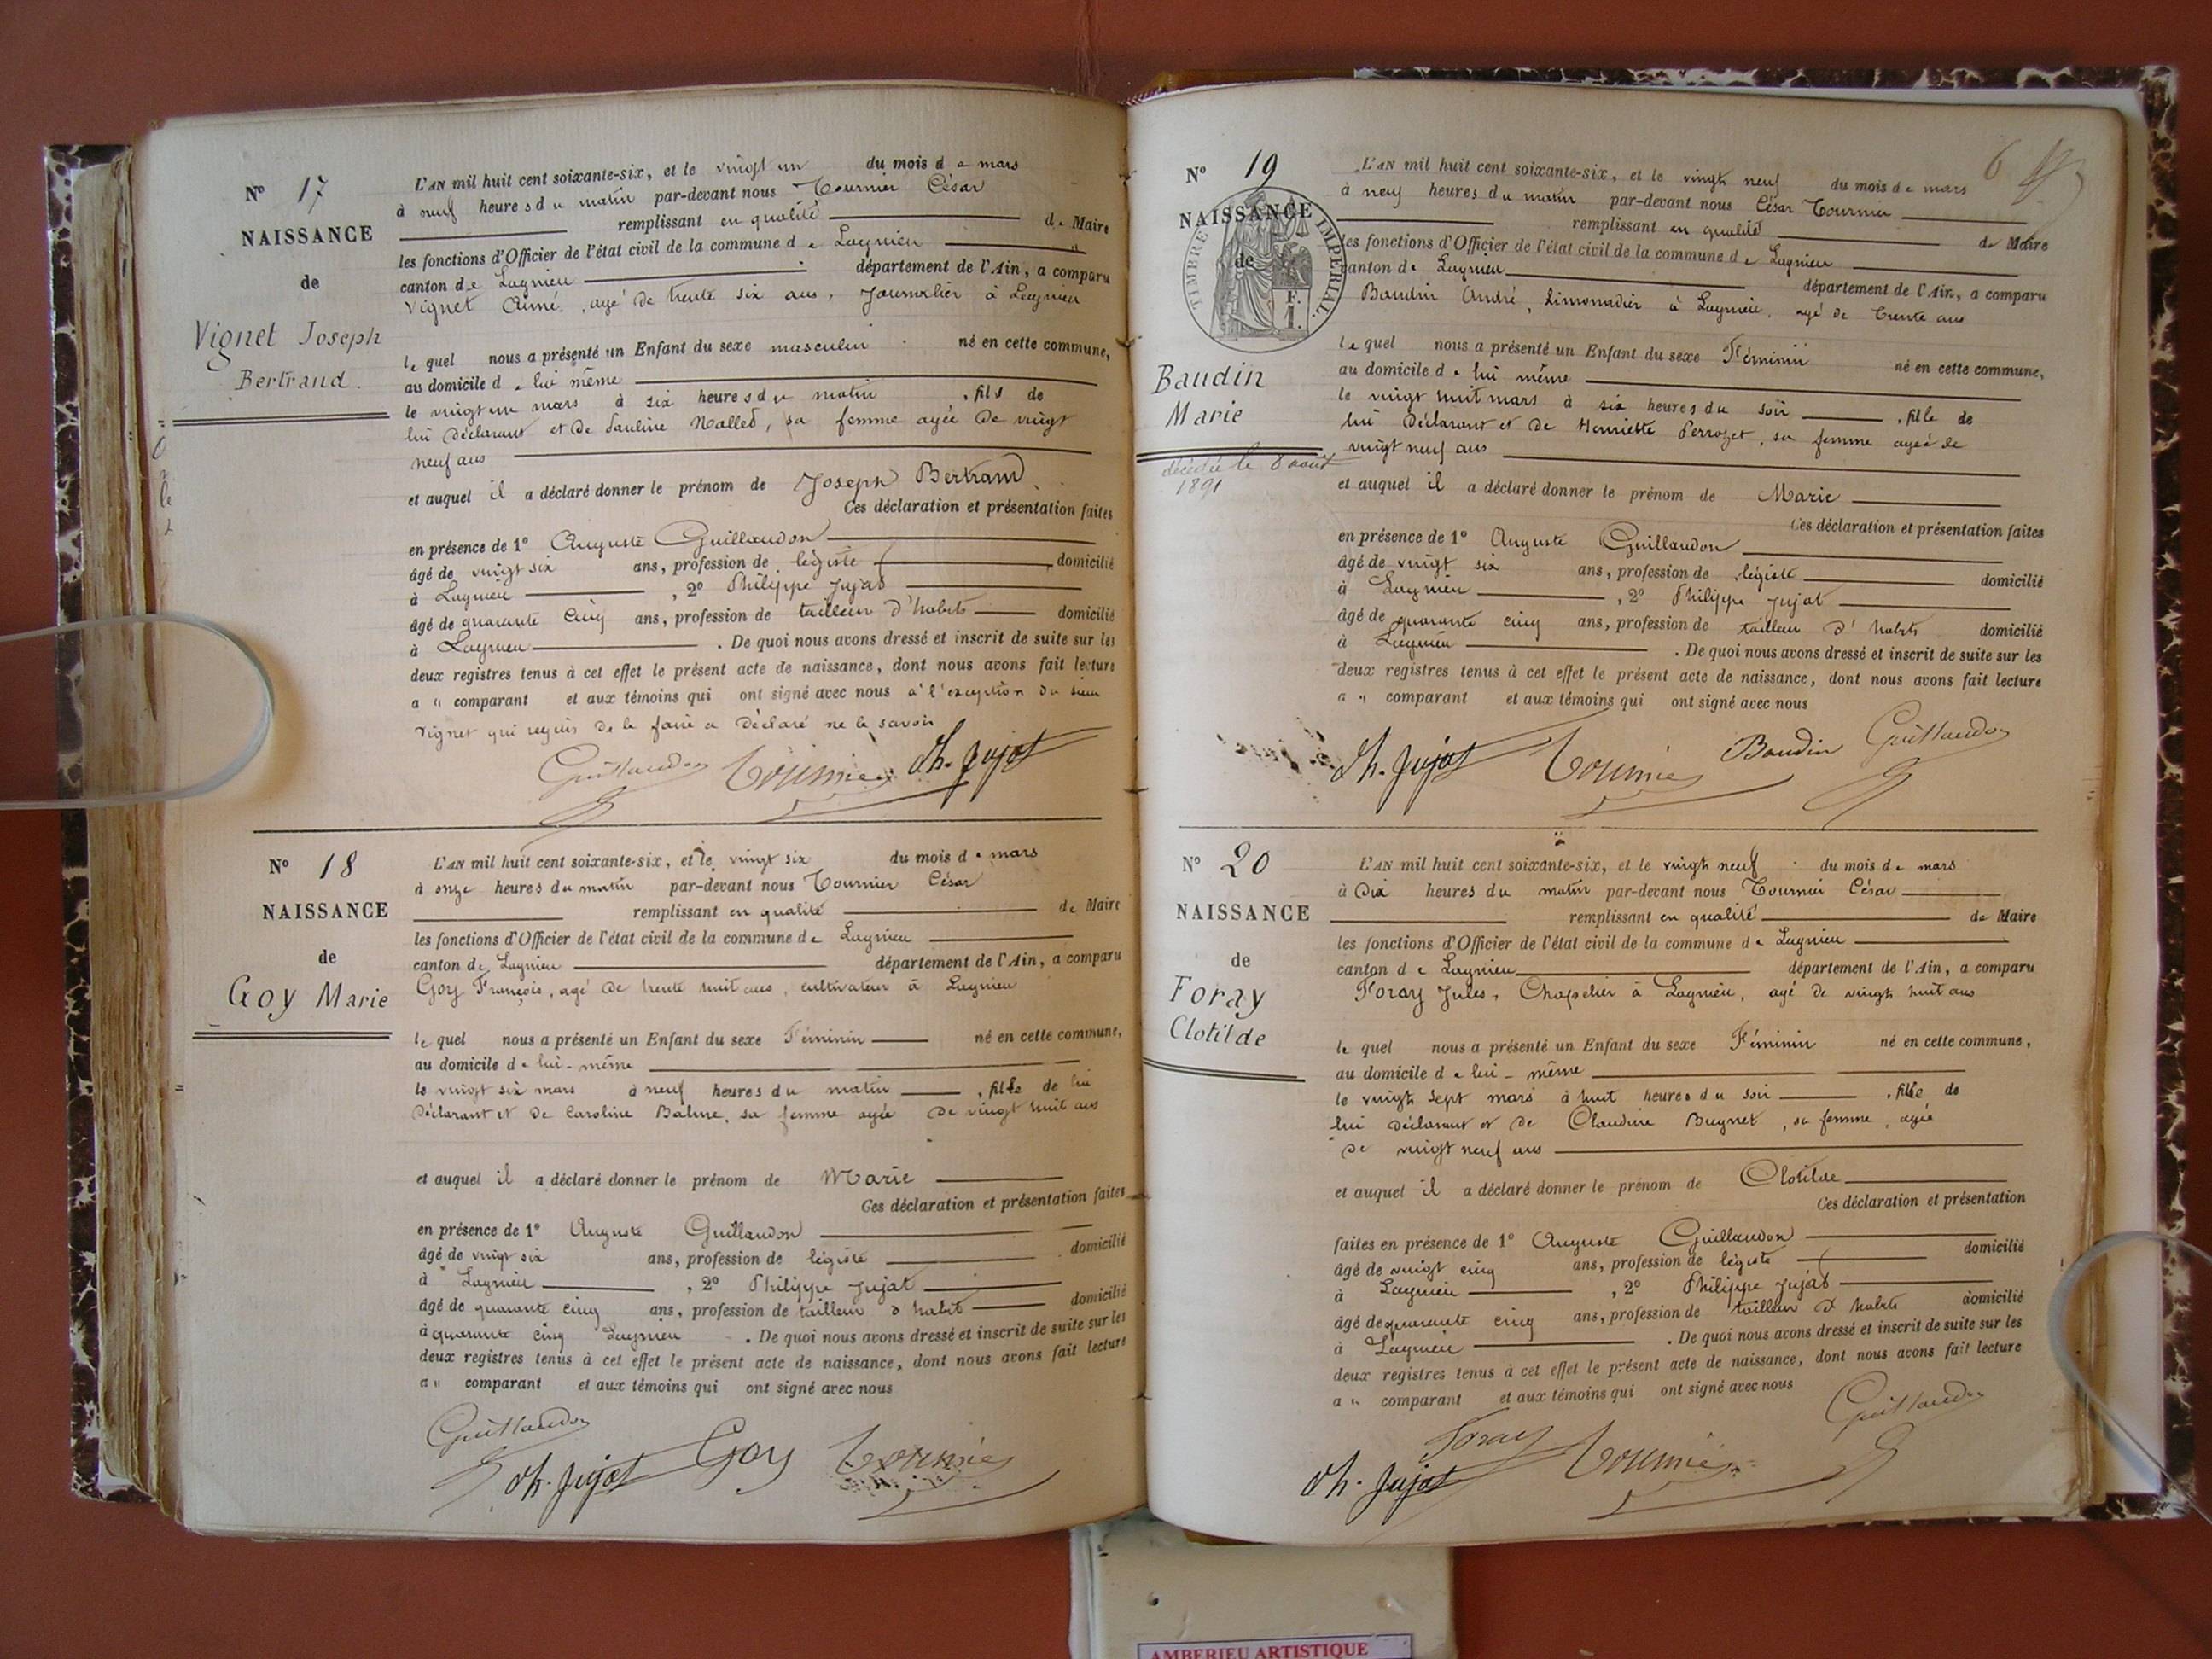 N° 17
NAISSANCE
de
Vignet Joseph
Bertrand.
L'AN mil huit cent soixante-six, et le vingt un du mois de mars
à neuf heures du matin par-devant nous Tournier César
remplissant en qualité de Maire
les fonctions d'Officier de l'état civil de la commune de Lagnieu
canton de Lagnieu département de l'Ain, a comparu
Vignet Aimé, agé de trente six ans, Journalier à Lagnieu
lequel nous a présenté un Enfant du sexe masculin né en cette commune,
au domicile de lui même
le vingt un mars à six heures du matin, fils de
lui Déclarant et de Pauline Nallet, sa femme agée de vingt
neuf ans
et auquel il a déclaré donner le prénom de Joseph Bertrand
Ces déclaration et présentation faites
en présence de 1° Auguste Guillaudon
âgé de vingt six ans, profession de légiste domicilié
à Lagnieu, 2° Philippe Jujat
âgé de quarante cinq ans, profession de tailleur d'habits domicilié
à Lagnieu. De quoi nous avons dressé et inscrit de suite sur les
deux registres tenus à cet effet le présent acte de naissance, dont nous avons fait lecture
a u comparant et aux témoins qui ont signé avec nous à l'exception du sieur
Vignet qui requis de le faire a Déclaré ne le savoir
Guillaudon Tournier Ph. Jujat
N° 18
NAISSANCE
de
Goy Marie
L'AN mil huit cent soixante-six, et le vingt six du mois de mars
à onze heures du matin par-devant nous Tournier César
remplissant en qualité de Maire
les fonctions d'Officier de l'état civil de la commune de Lagnieu
canton de Lagnieu département de l'Ain, a comparu
Goy François, agé de trente huit ans, cultivateur à Lagnieu
lequel nous a présenté un Enfant du sexe Féminin né en cette commune,
au domicile de lui-même
le vingt six mars à neuf heures du matin, fille de lui
Déclarant et de Caroline Balme, sa femme agée de vingt huit ans
et auquel il a déclaré donner le prénom de Marie
Ces déclaration et présentation faites
en présence de 1° Auguste Guillaudon
âgé de vingt six ans, profession de légiste domicilié
à Lagnieu, 2° Philippe Jujat
âgé de quarante cinq ans, profession de tailleur d'habits domicilié
à quarante cinq Lagnieu. De quoi nous avons dressé et inscrit de suite sur les
deux registres tenus à cet effet le présent acte de naissance, dont nous avons fait lecture
a u comparant et aux témoins qui ont signé avec nous
Guillaudon
Ph. Jujat Goy Tournier
N° 19
NAISSANCE
de
TIMBRE IMPÉRIAL
F.
1.
Baudin
Marie
décédée le 8 août
1891
6
L'AN mil huit cent soixante-six, et le vingt neuf du mois de mars
à neuf heures du matin par-devant nous César Tournier
remplissant en qualité de Maire
les fonctions d'Officier de l'état civil de la commune de Lagnieu
canton de Lagnieu département de l'Ain, a comparu
Baudin André, limonadier à Lagnieu, agé de trente ans
lequel nous a présenté un Enfant du sexe Féminin né en cette commune,
au domicile de lui même
le vingt huit mars à six heures du soir, fille de
lui Déclarant et de Henriette Perrozet, sa femme agée de
vingt neuf ans
et auquel il a déclaré donner le prénom de Marie
Ces déclaration et présentation faites
en présence de 1° Auguste Guillaudon
âgé de vingt six ans, profession de légiste domicilié
à Lagnieu, 2° Philippe Jujat
âgé de quarante cinq ans, profession de tailleur d'habits domicilié
à Lagnieu. De quoi nous avons dressé et inscrit de suite sur les
deux registres tenus à cet effet le présent acte de naissance, dont nous avons fait lecture
a u comparant et aux témoins qui ont signé avec nous
Ph. Jujat Tournier Baudin Guillaudon
N° 20
NAISSANCE
de
Foray
Clotilde
L'AN mil huit cent soixante-six, et le vingt neuf du mois de mars
à Dix heures du matin par-devant nous Tournier César
remplissant en qualité de Maire
les fonctions d'Officier de l'état civil de la commune de Lagnieu
canton de Lagnieu département de l'Ain, a comparu
Foray Jules, Chapelier à Lagnieu, agé de vingt huit ans
lequel nous a présenté un Enfant du sexe Féminin né en cette commune,
au domicile de lui-même
le vingt sept mars à huit heures du soir, fille de
lui déclarant et de Claudine Bugnet, sa femme, agée
de vingt neuf ans
et auquel il a déclaré donner le prénom de Clotilde
Ces déclaration et présentation
faites en présence de 1° Auguste Guillaudon
âgé de vingt cinq ans, profession de légiste domicilié
à Lagnieu, 2° Philippe Jujat
âgé de quarante cinq ans, profession de tailleur d'habits domicilié
à Lagnieu. De quoi nous avons dressé et inscrit de suite sur les
deux registres tenus à cet effet le présent acte de naissance, dont nous avons fait lecture
a u comparant et aux témoins qui ont signé avec nous
Guillaudon
Ph. Jujat Foray Tournier
AMBERIEU ARTISTIQUE